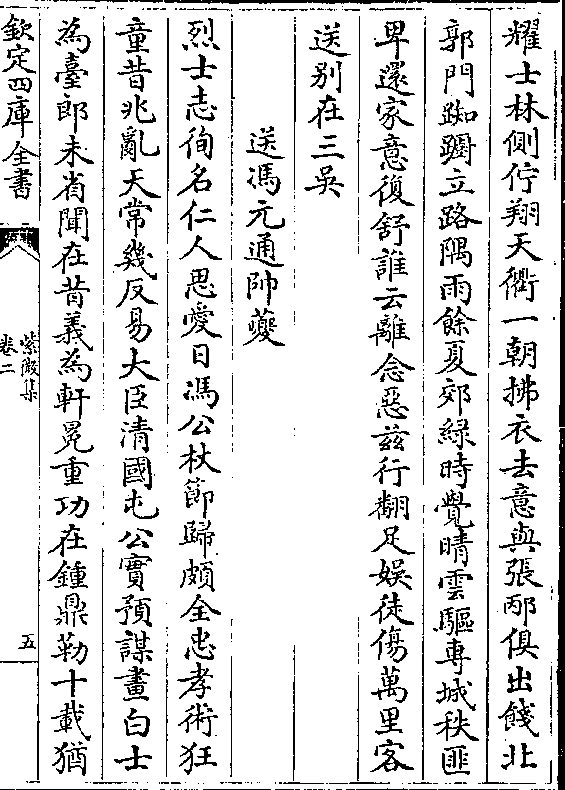 耀士林側佇翔天衢一朝拂衣去意與張邴俱出餞北
郭門踟躕立路隅雨餘夏郊綠時覺晴雲驅専城秩匪
卑還家意復舒誰云離念惡兹行翻足娛徒傷萬里客
送别在三吳
送馮元通帥夔
烈士志徇名仁人思愛日馮公杖節歸頗全忠孝術狂
童昔兆亂天常幾反易大臣清國屯公實預謀畫白士
為臺郎未省聞在昔義為軒冕重功在鍾鼎勒十載猶
欽定四庫全書
紫微集
卷二
五